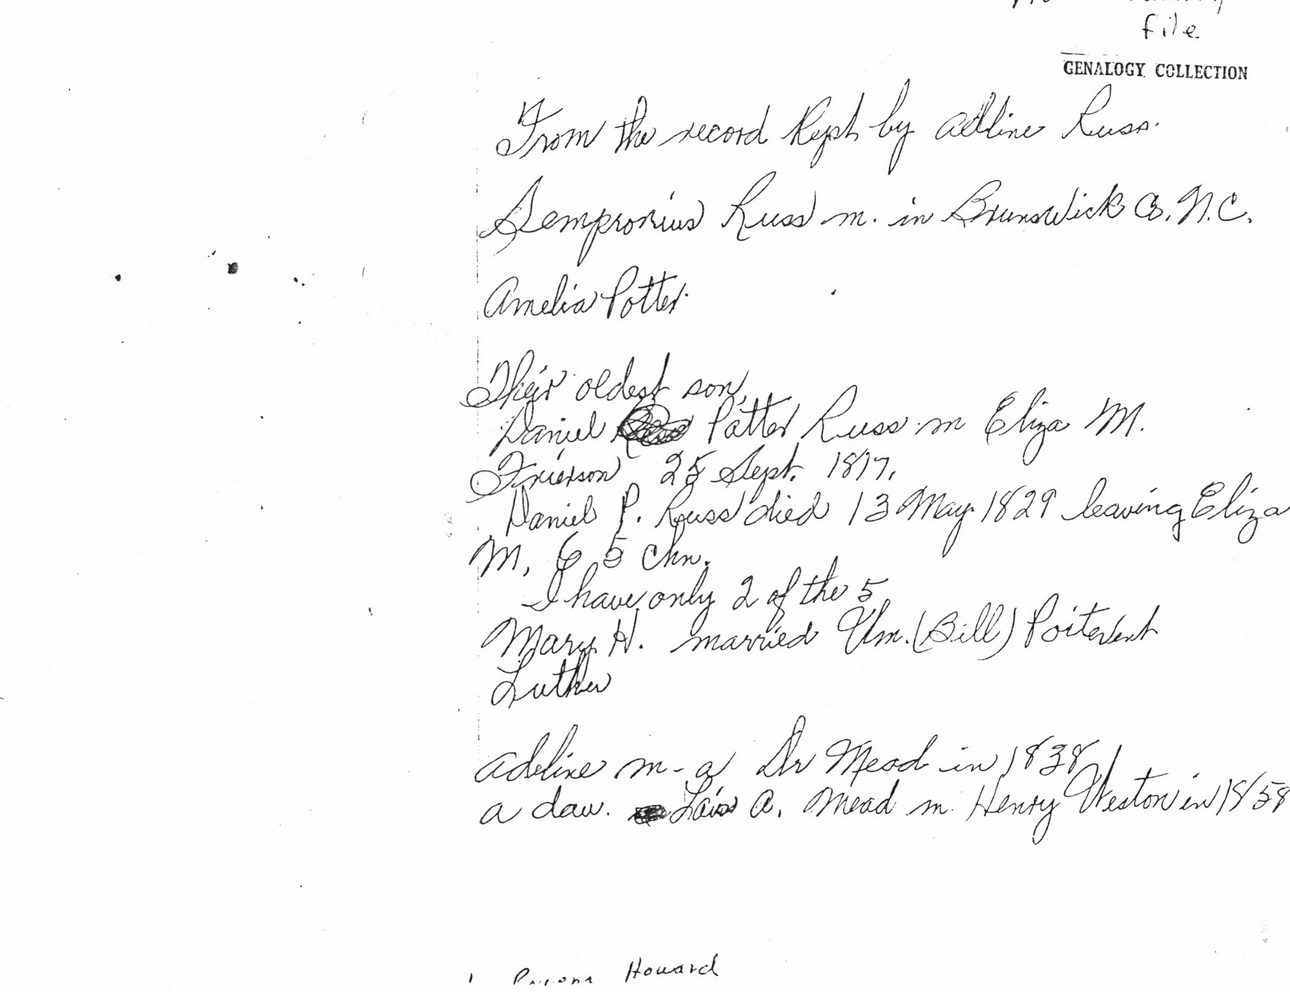 file
GENALOGY COLLECTION
From the record Kept by Adline Russ.
Sempronius Russ m. in Brunswick Co. N.C.
Amelia Potter.
Their oldest son,
Daniel Potter Russ m Eliza M.
Frierson 25 Sept. 1817.
Daniel P. Russ died 13 May 1829 leaving Eliza
M. & 5 chn.
I have only 2 of the 5
Mary H. married Wm. (Bill) Poitevent
Luther
Adeline m - a Dr Mead in 1838
a dau. Lois A. Mead m. Henry Weston in 1858
Howard